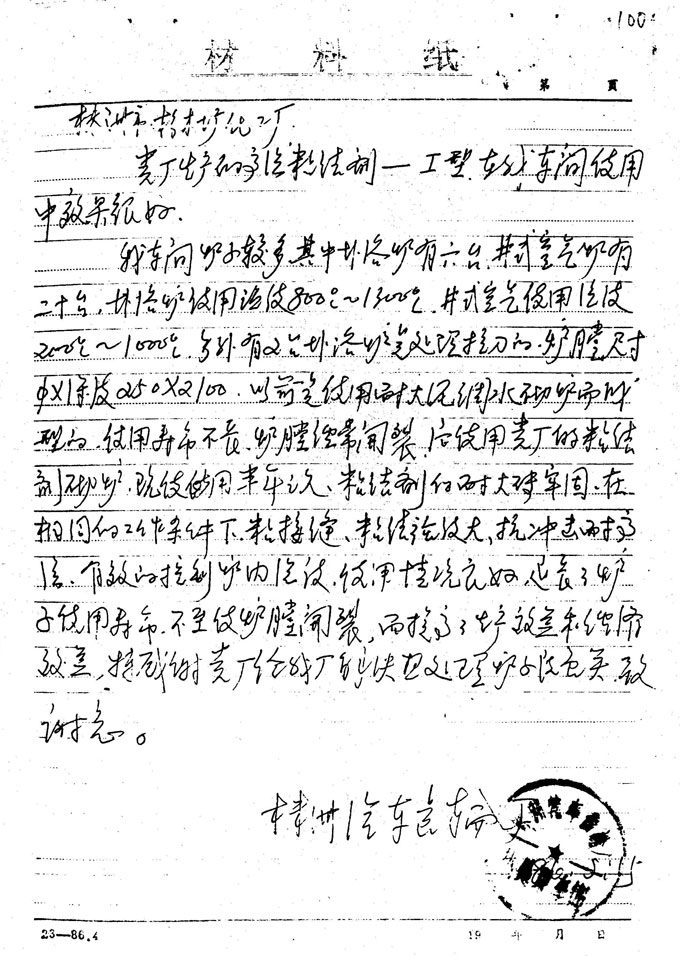 100
材料纸
第 页
株洲市
贵厂生产的高温粘结剂—I型,在我车间使用
中效果很好.
我车间炉子较多其中外洛炉有六台,井式空气炉有
二十台,外洛炉使用温度800℃~1300℃,井式空气使用温度
200℃~1000℃,另外有2台外洛炉是处理拉刀的,炉膛尺寸
φ×深度250×2100.以前是使用耐火泥调水砌炉而成
型的,使用寿命不长,炉膛经常开裂,后使用贵厂的粘结
剂砌炉,现使用半年之久,粘结剂的耐火牢固.在
相同的工作条件下,粘接缝、粘结强度大,抗冲击耐高
温.有效的控制炉内温度,使用情况良好,延长了炉
子使用寿命,不至使炉膛开裂,而提高了生产效益和经济
效益,特感谢贵厂给我厂解决处理炉子,致
谢意。
株洲汽车齿轮厂
23—86.4
19 年 月 日